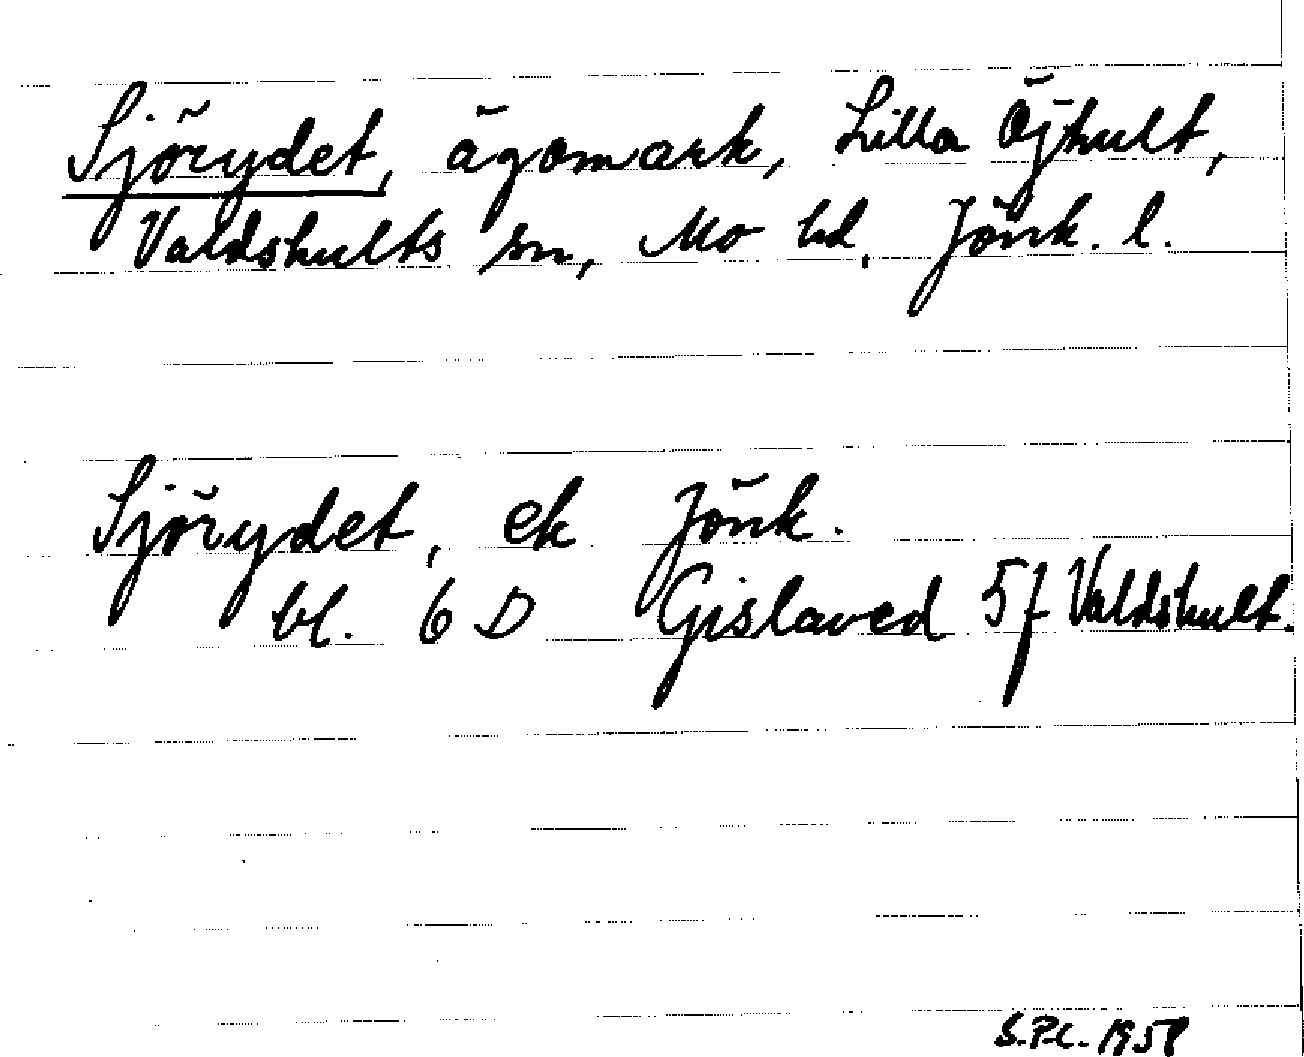 Sjörydet, ägomark, Lilla Öjhult,
Valdshults sn, Mo hd, Jönk. l.
Sjörydet, ek Jönk.
bl. 6 D Gislaved 5f Valdshult.
S.P.C. 1958